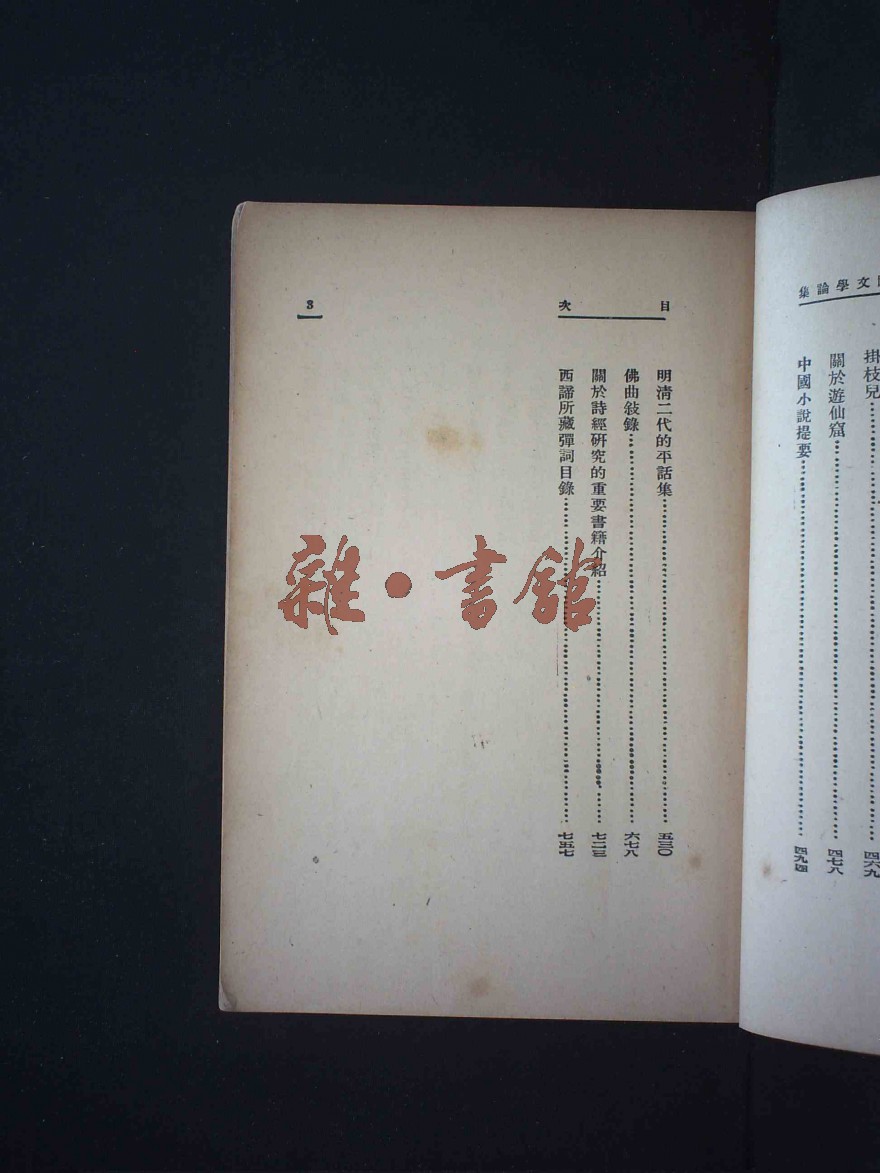 集論學文
掛枝兒⋯⋯四六九
關於遊仙窟⋯⋯四七八
中國小說提要⋯⋯四九四
目次
3
明清二代的平話集⋯⋯五三〇
佛曲敍錄⋯⋯六七八
關於詩經研究的重要書籍介紹⋯⋯七二三
西諦所藏彈詞目錄⋯⋯七五七
雜·書館